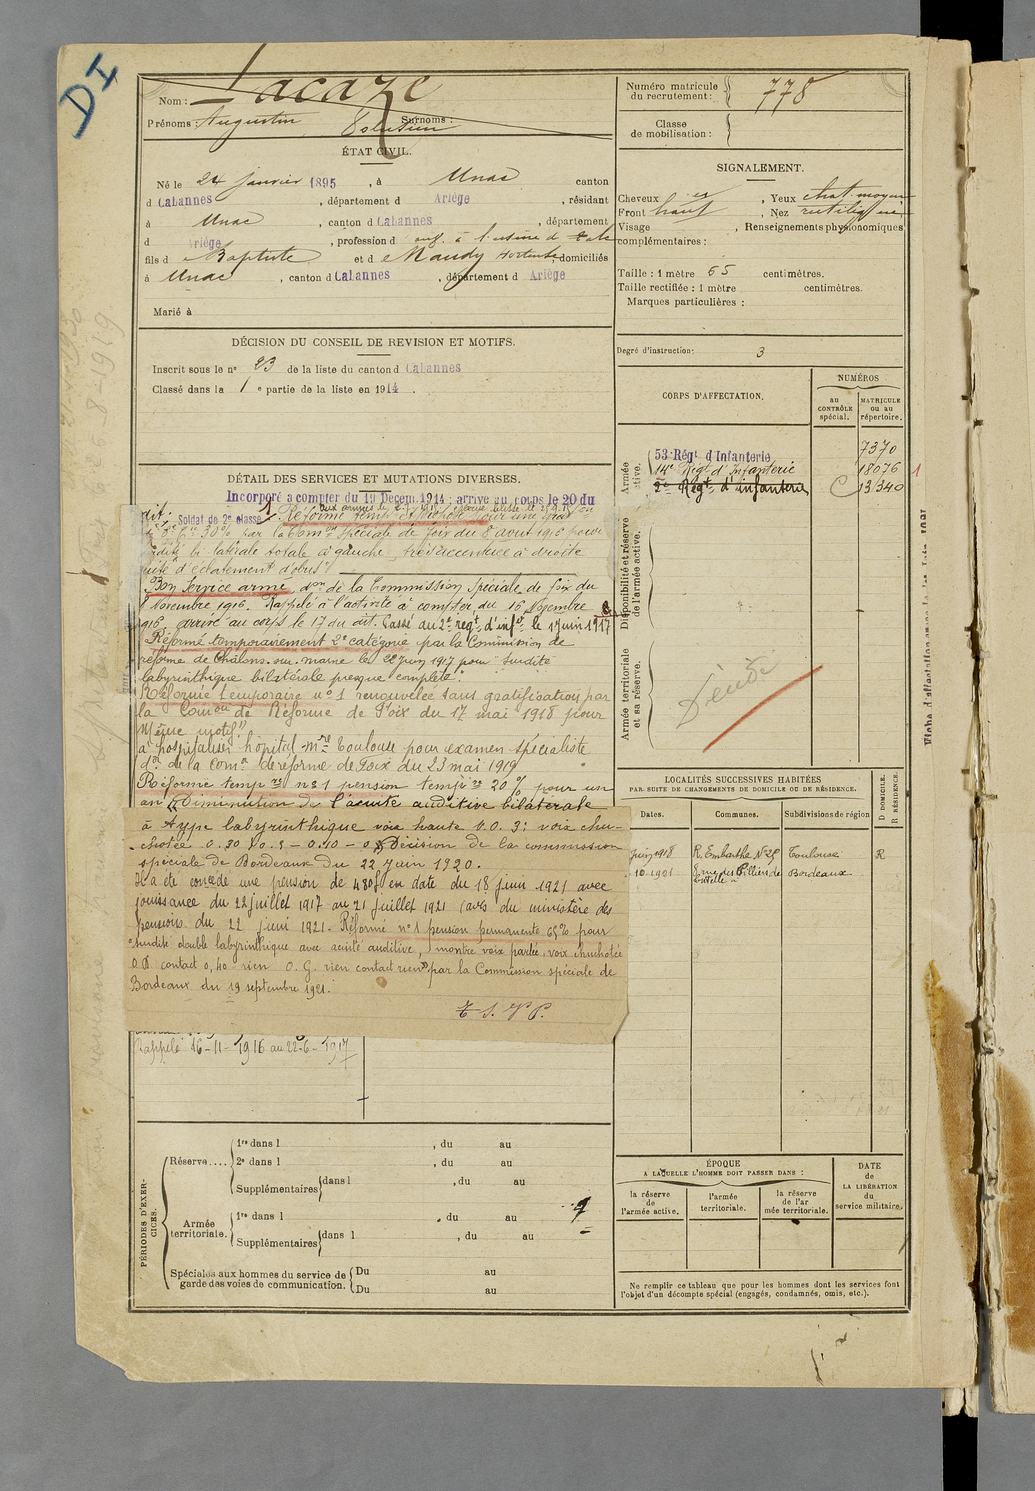 DI
Nom : Lacaze
Prénoms : Augustin Surnoms :
Numéro matricule du recrutement : 778
Classe de mobilisation :
ÉTAT CIVIL.
Né le 24 janvier 1895, à Unac canton
d Cabannes, département d Ariège, résidant
à Unac, canton d Cabannes, département
d Ariège, profession d à l'usine d
fils d Baptiste et d Maudy Hortense, domiciliés
à Unac, canton d Cabannes, département d Ariège
Marié à
SIGNALEMENT.
Cheveux, Yeux chat. moyen
Front haut, Nez rectiligne
Visage, Renseignements physionomiques
complémentaires :
Taille : 1 mètre 65 centimètres.
Taille rectifiée : 1 mètre centimètres.
Marques particulières :
Degré d'instruction : 3
DÉCISION DU CONSEIL DE REVISION ET MOTIFS.
Inscrit sous le n° 23 de la liste du canton d Cabannes
Classé dans la 1e partie de la liste en 1914.
CORPS D'AFFECTATION.
NUMÉROS
au CONTRÔLE spécial.
MATRICULE ou au répertoire.
Armée active.
53 Régt d'Infanterie 7370
14e Régt d'Infanterie 18076
2e Régt d'infanterie C 13340
Disponibilité et réserve de l'armée active.
Armée territoriale et sa réserve.
DÉTAIL DES SERVICES ET MUTATIONS DIVERSES.
Incorporé à compter du 19 Décem. 1914 ; arrivé au corps le 20 du
dit. Soldat de 2e classe
1. Réformé temp
30% par la Comon spéciale de Foix du 8 aout 1916 pour
bi latérale totale à gauche, très accentuée à droite
suite d'éclatement d'obus
Bon service armé don de la Commission Spéciale de Foix du
Novembre 1916. Rappelé à l'activité à compter du 16 Novembre
1916, arrivé au corps le 17 du dit. Passé au 2e regt d'infie le 1 juin 1917
Réformé temporairement 2e catégorie par la Commission de
réforme de Châlons-sur-Marne le 22 juin 1917 pour "surdité
labyrinthique bilatérale presque complète".
Réforme temporaire n° 1 renouvelée sans gratification par
la Comon de Réforme de Foix du 17 mai 1918 pour
même motif
à hospitaliser hôpital mre Toulouse pour examen spécialiste
don de la Comon de réforme de Foix du 23 mai 1919
Réforme tempre n° 1 pension tempre 20 % pour un
an "Diminution de l'acuité auditive bilatérale
à type labyrinthique voix haute
chotée Décision de la commission
spéciale de Bordeaux du 22 juin 1920.
Il a été concédé une pension de 480f en date du 18 juin 1921 avec
jouissance du 22 juillet 1917 au 21 juillet 1921 (avis du ministère des
pensions du 22 juin 1921. Réformé n° 1 pension permanente 65% pour
surdité double labyrinthique avec acuité auditive, montre voix parlée, voix chuchotée
O.D. contact 0,40 rien O.G. rien contact rien" par la Commission spéciale de
Bordeaux du 19 septembre 1921.
T. S. V. P.
Rappelé 16-11-1916 au 22-6-1917
LOCALITÉS SUCCESSIVES HABITÉES
PAR SUITE DE CHANGEMENTS DE DOMICILE OU DE RÉSIDENCE.
Dates. Communes. Subdivisions de région D DOMICILE. R RÉSIDENCE.
Juin 1918 R. Embarthe N° 25 Toulouse R
10 1921 rue des Piliers de Tutelle Bordeaux
PÉRIODES D'EXERCICES.
Réserve.... 1re dans l, du au
2e dans l, du au
Supplémentaires dans l, du au
Armée territoriale. 1re dans l, du au
Supplémentaires dans l, du au
Spéciales aux hommes du service de garde des voies de communication. Du au
Du au
ÉPOQUE
A LAQUELLE L'HOMME DOIT PASSER DANS :
la réserve de l'armée active.
l'armée territoriale.
la réserve de l'armée territoriale.
DATE DE LA LIBÉRATION du service militaire.
Ne remplir ce tableau que pour les hommes dont les services font
l'objet d'un décompte spécial (engagés, condamnés, omis, etc.).